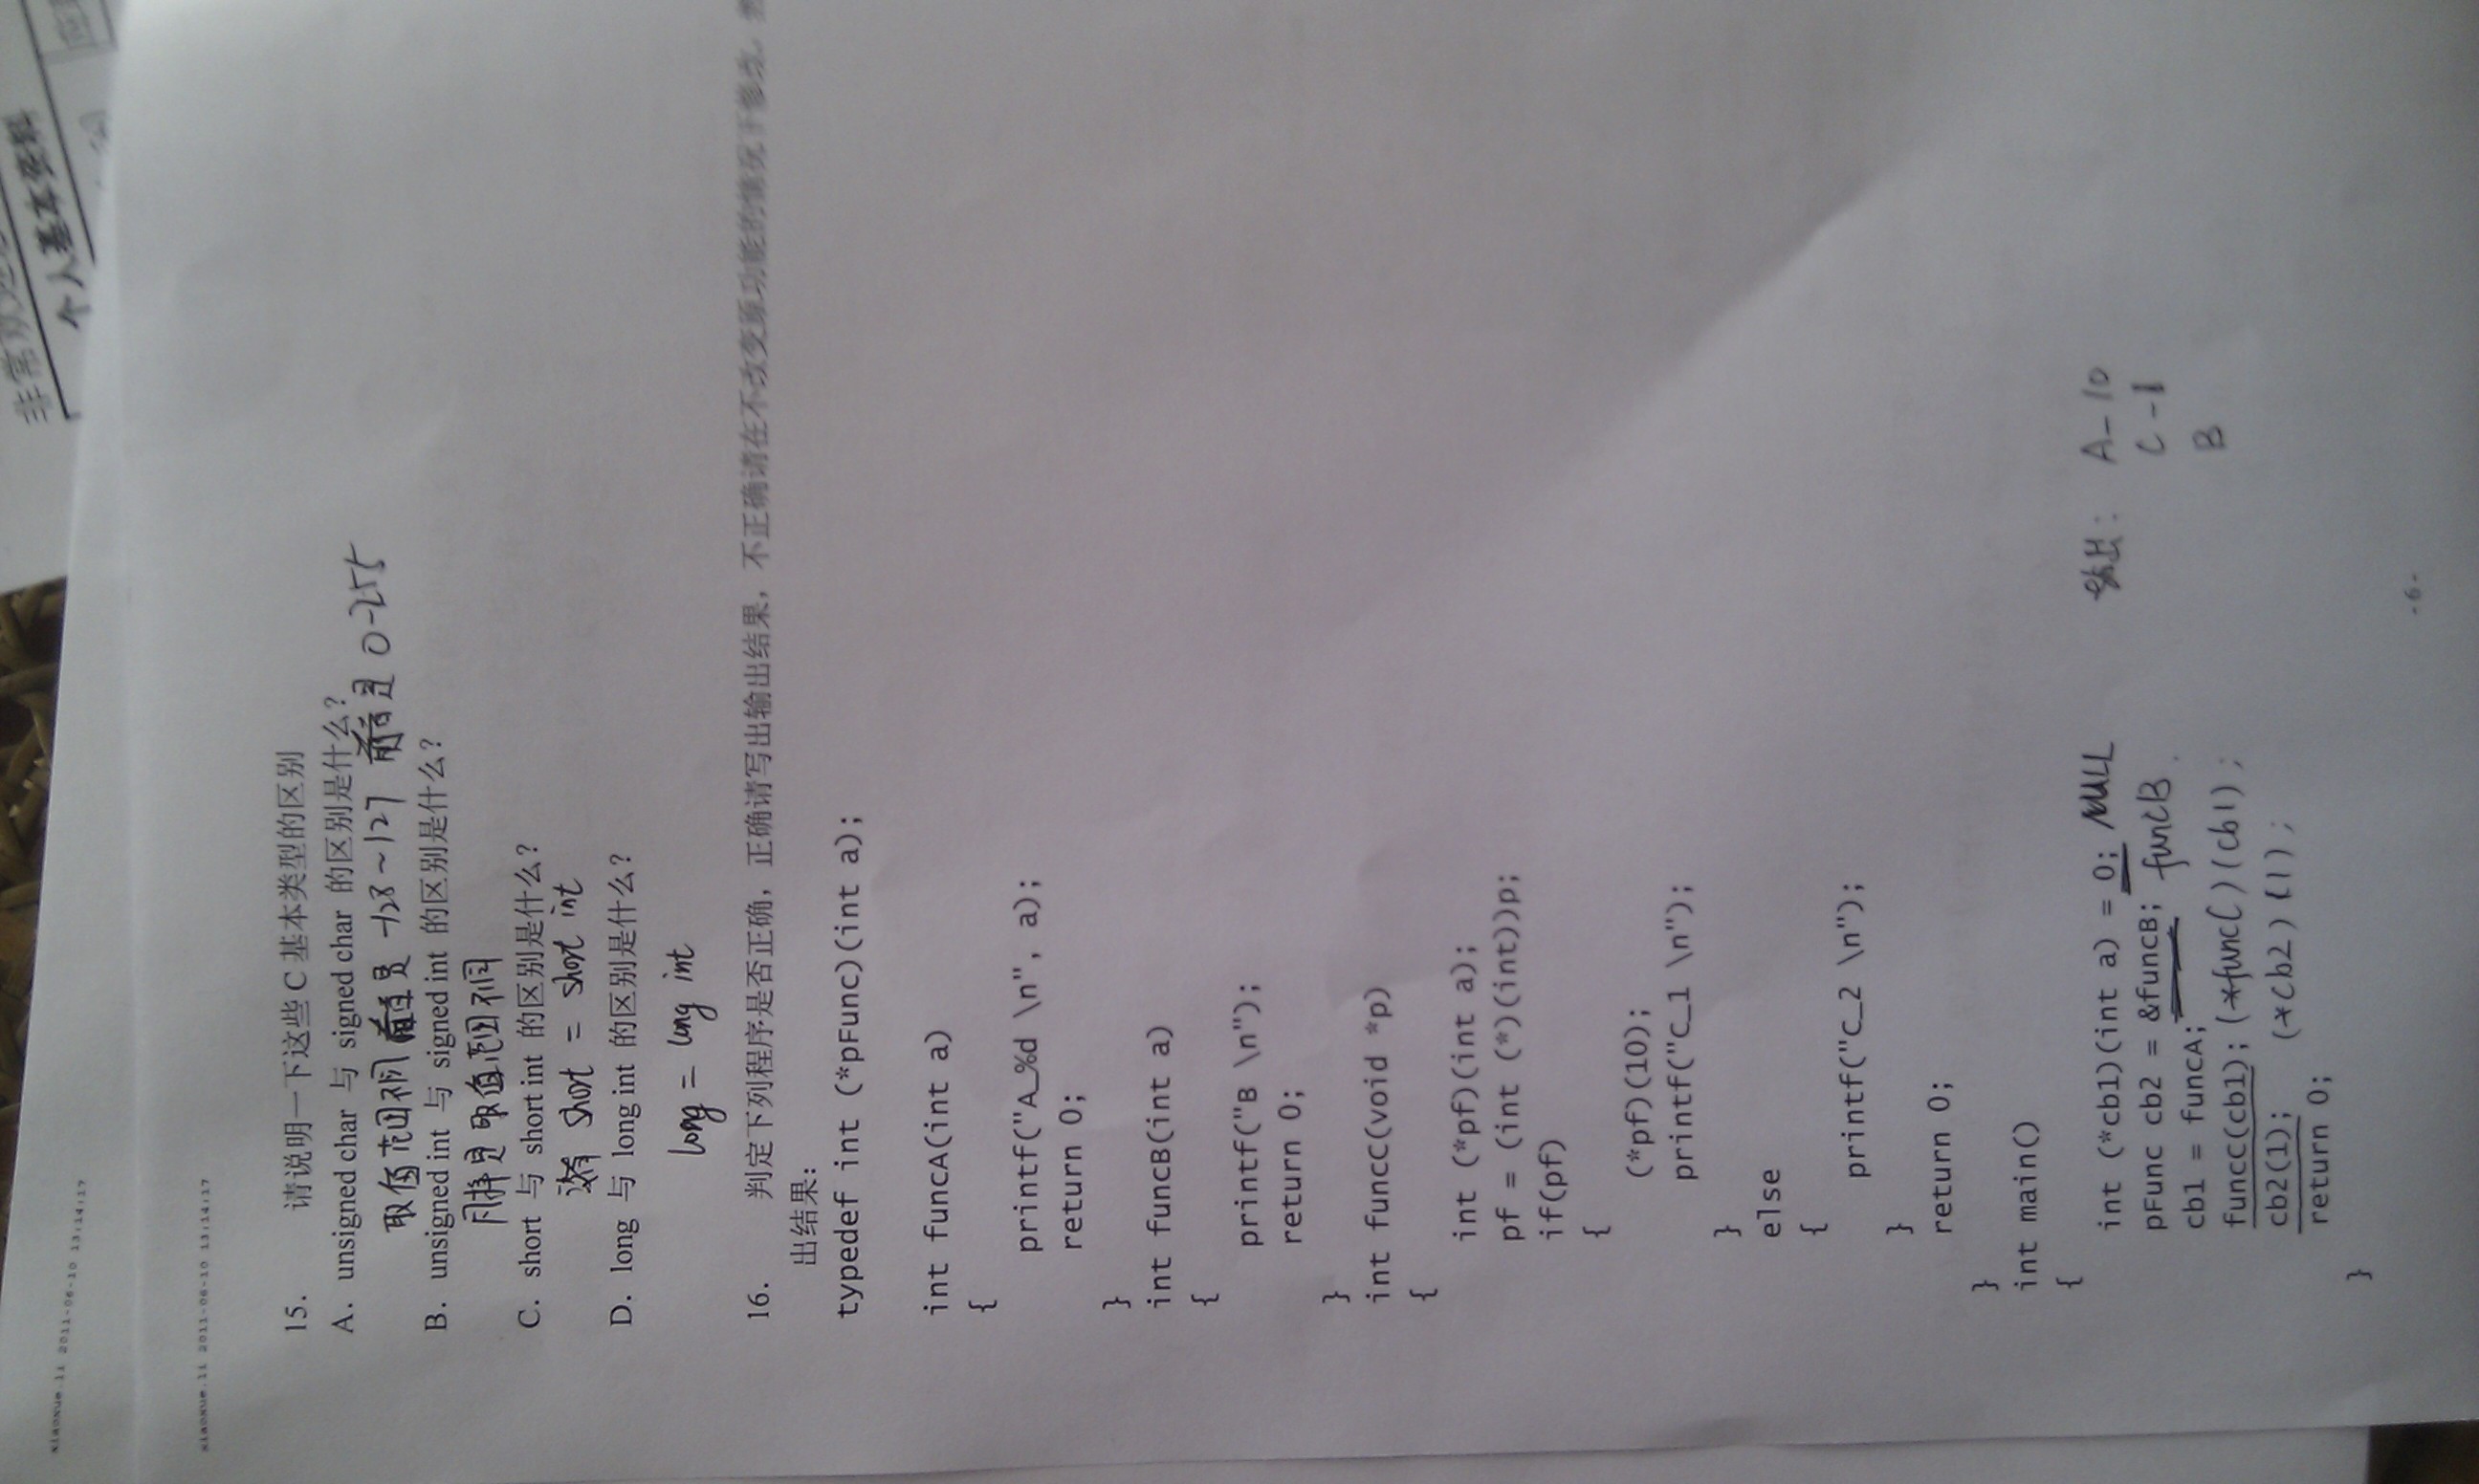 非常
个人基本资料
xiaoxue.li 2011-06-10 13:14:17
xiaoxue.li 2011-06-10 13:14:17
15. 请说明一下这些 C 基本类型的区别
A. unsigned char 与 signed char 的区别是什么?
取值范围不同 是 -128~127 前者是 0-255
B. unsigned int 与 signed int 的区别是什么?
同样是取值范围不同
C. short 与 short int 的区别是什么?
short = short int
D. long 与 long int 的区别是什么?
long = long int
16. 判定下列程序是否正确, 正确请写出输出结果, 不正确请在不改变原功能的情况下修改,
出结果:
typedef int (*pFunc)(int a);
int funcA(int a)
{
printf("A_%d \n", a);
return 0;
}
int funcB(int a)
{
printf("B \n");
return 0;
}
int funcC(void *p)
{
int (*pf)(int a);
pf = (int (*)(int))p;
if(pf)
{
(*pf)(10);
printf("C_1 \n");
}
else
{
printf("C_2 \n");
}
return 0;
}
int main()
{
int (*cb1)(int a) = 0; NULL
pFunc cb2 = &funcB; funcB.
cb1 = funcA;
funcC(cb1); (*funcC)(cb1);
cb2(1); (*cb2)(1);
return 0;
}
输出: A-10
C-1
B
-6-